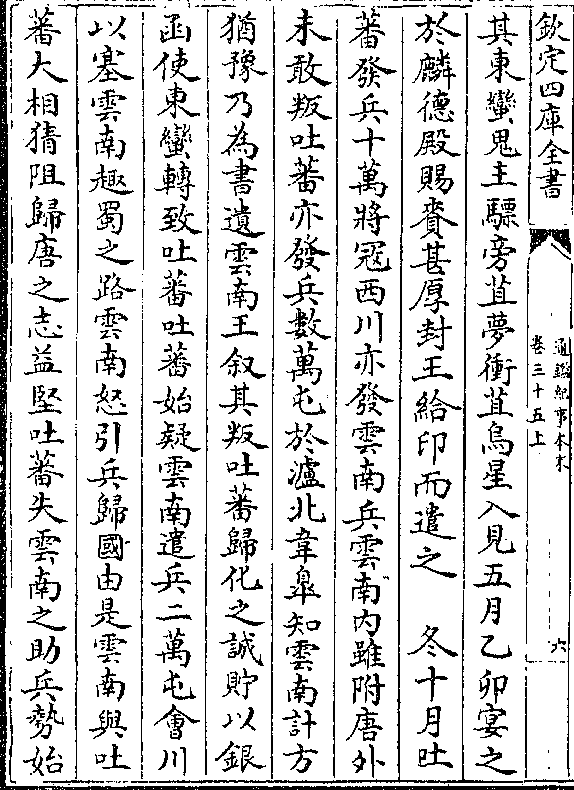 欽定四庫全書
通鑑紀事本末
卷三十五上
六
其東蠻鬼主驃旁苴夢衝苴烏星入見五月乙卯宴之
於麟德殿賜賚甚厚封王給印而遣之　冬十月吐
蕃發兵十萬將寇西川亦發雲南兵雲南内雖附唐外
未敢叛吐蕃亦發兵數萬屯於瀘北韋皐知雲南計方
猶豫乃為書遺雲南王叙其叛吐蕃歸化之誠貯以銀
函使東蠻轉致吐蕃吐蕃始疑雲南遣兵二萬屯會川
以塞雲南趣蜀之路雲南怒引兵歸國由是雲南與吐
蕃大相猜阻歸唐之志益堅吐蕃失雲南之助兵勢始